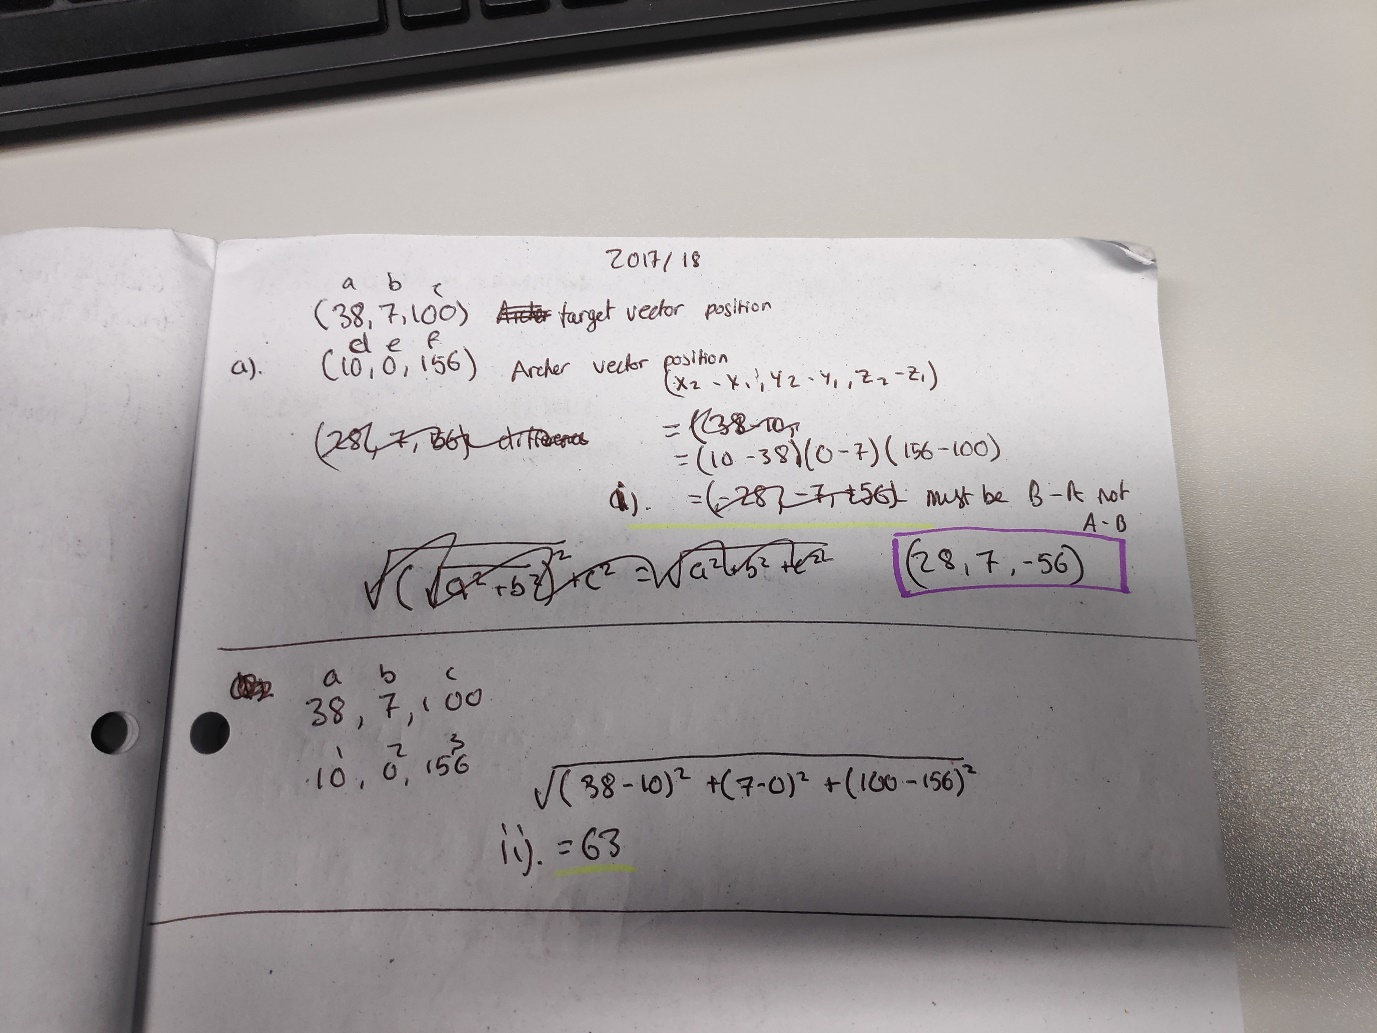 2017/18
a b c
(38, 7, 100) target vector position
d e f
a). (10, 0, 156) Archer vector position
(x₂ - x₁, y₂ - y₁, z₂ - z₁)
(28, 7, 56) difference
= ((38-10,
= (10 - 38)(0 - 7)(156 - 100)
i). = (-28, -7, +56) must be B-A not
A-B
√(√a²+b²)²+c² = √a²+b²+c²
(28, 7, -56)
a b c
38, 7, 100
1 2 3
10, 0, 156
√(38-10)² + (7-0)² + (100-156)²
ii). = 63